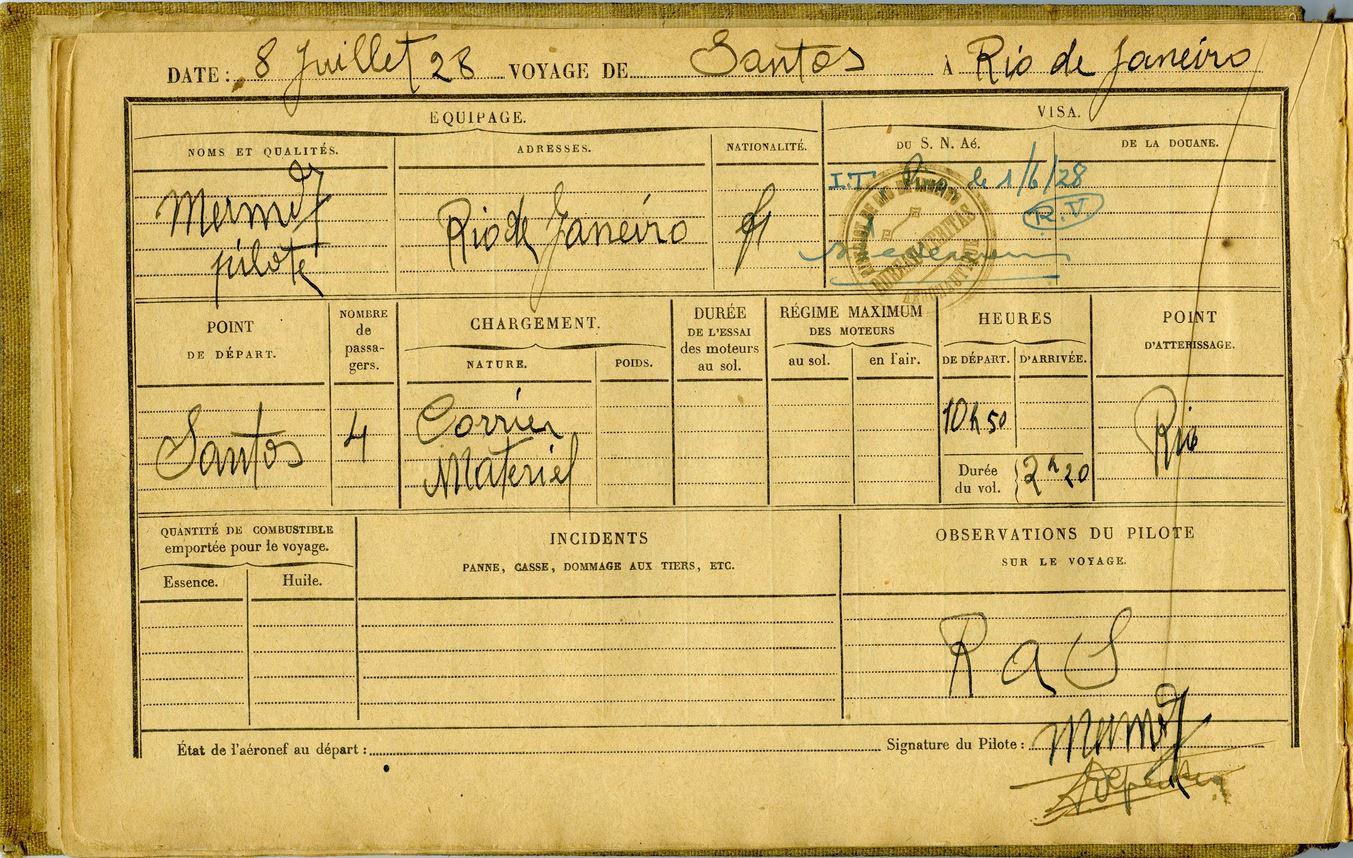 DATE: 8 Juillet 28 VOYAGE DE Santos À Rio de Janeiro
EQUIPAGE.
VISA.
NOMS ET QUALITÉS.
ADRESSES.
NATIONALITÉ.
DU S. N. Aé.
DE LA DOUANE.
Mermoz
pilote
Rio de Janeiro
fr
I.T. le 1/6/28
R.V.
POINT
DE DÉPART.
NOMBRE
de
passa-
gers.
CHARGEMENT.
NATURE.
POIDS.
DURÉE
DE L'ESSAI
des moteurs
au sol.
RÉGIME MAXIMUM
DES MOTEURS
au sol.
en l'air.
HEURES
DE DÉPART.
D'ARRIVÉE.
POINT
D'ATTERISSAGE.
Santos
4
Corrier
Materiel
10h50
Durée
du vol.
2h20
Rio
QUANTITÉ DE COMBUSTIBLE
emportée pour le voyage.
Essence.
Huile.
INCIDENTS
PANNE, CASSE, DOMMAGE AUX TIERS, ETC.
OBSERVATIONS DU PILOTE
SUR LE VOYAGE.
R a S
État de l'aéronef au départ :
Signature du Pilote : Mermoz